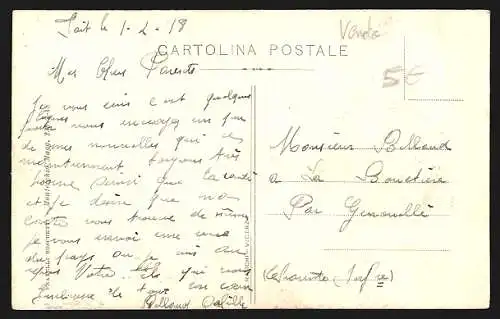 Fait le 1-2-18
Vendu
CARTOLINA POSTALE
5€
Mes Chers Parents
Je vous écris c'est quelques
lignes pour vous envoyer un peu
de mes nouvelles qui est
maintenant toujours très
bonne ainsi que la santé
et je désire que ma
carte vous trouve de même
je vous envoi une vue
du pays ou je suis au
repos Votre fils qui vous
embrasse de tout son cœur
Billaud
Monsieur Billaud
a La
Par Genouillé
(Charente Infre)